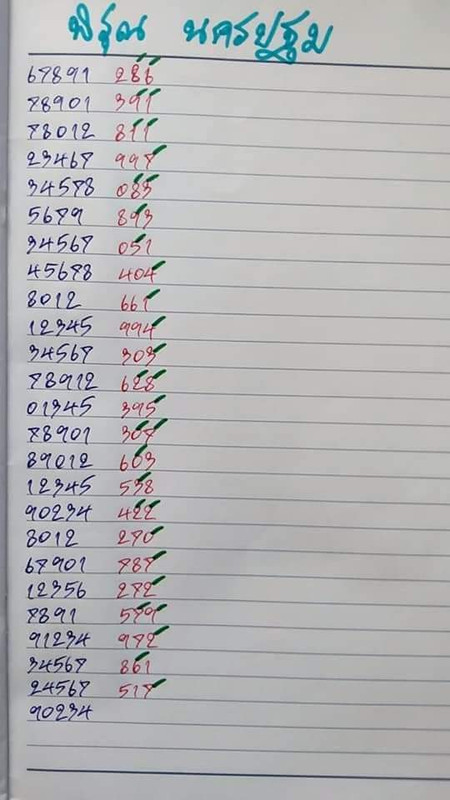 พิรุณ นครปฐม
67891 286
78901 391
78012 811
23467 997
34578 085
5679 893
34567 051
45678 404
8012 661
12345 994
34567 303
78912 628
01345 395
78901 307
89012 603
12345 538
90234 422
8012 270
67901 787
12356 272
7891 579
91234 972
34567 861
24567 517
90234